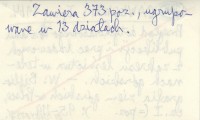 Zawiera 373 poz., ugrupo-
wane w 13 działach.